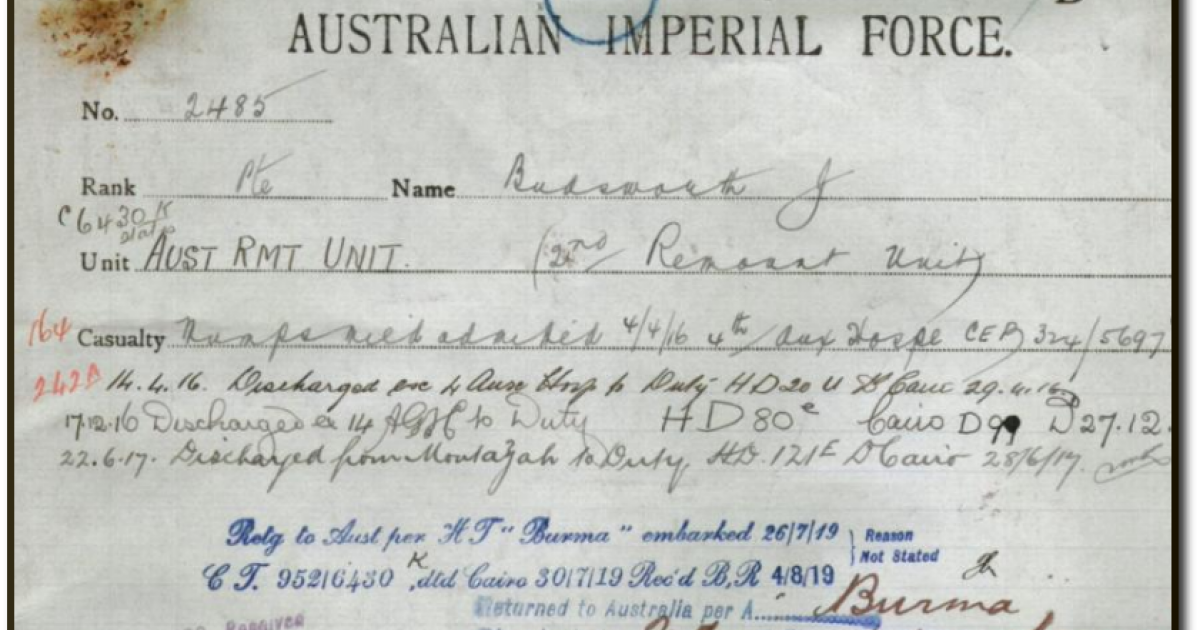 AUSTRALIAN IMPERIAL FORCE.
No. 2485
Rank Pte Name Budsworth J
C 6430 K
Unit AUST RMT UNIT. (2nd Remount Unit)
164 Casualty Mumps mild admitted 4/4/16 4th Aux Hosp CEP 324/5697
242A 14.4.16. Discharged ex 4 Aux Hosp to Duty HD20 Cairo 29.4.16
17.12.16 Discharged ex 14 AGH to Duty HD80 Cairo D99 D27.12.
22.6.17. Discharged from Montazah to Duty, HD.121E D Cairo 28/6/17.
Retg to Aust per H T "Burma" embarked 26/7/19 Reason
Not Stated
C T. 952/6430 K, dtd Cairo 30/7/19 Rec'd B,R 4/8/19
Returned to Australia per A. Burma
Received